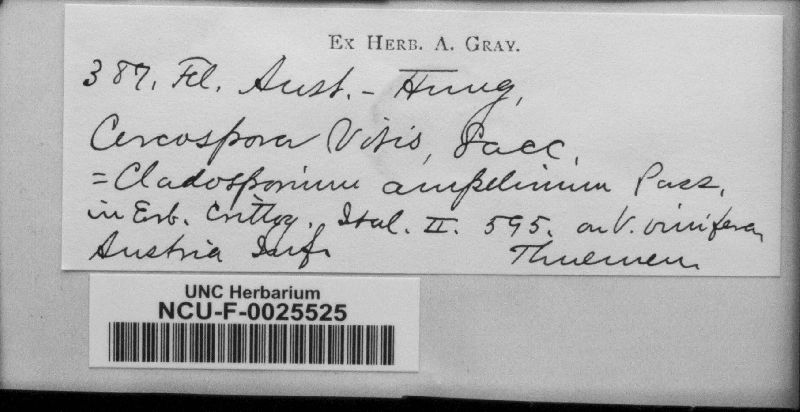 EX HERB. A. GRAY.
387. Fl. Aust. - Hung.
Cercospora Vitis, Sacc.
= Cladosporium ampelinum Pass.
in Erb. Crittog. Ital. II. 595. on V. vinifera,
Austria Inf. Thuemen.
UNC Herbarium
NCU-F-0025525